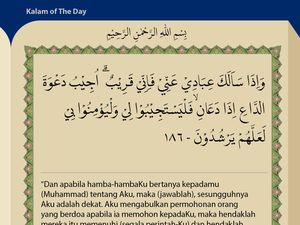 Kalam of The Day
بِسْمِ اللّٰهِ الرَّحْمٰنِ الرَّحِيْمِ
وَاِذَا سَاَلَكَ عِبَادِيْ عَنِّيْ فَاِنِّيْ قَرِيْبٌ ۗ اُجِيْبُ دَعْوَةَ
الدَّاعِ اِذَا دَعَانِۙ فَلْيَسْتَجِيْبُوْا لِيْ وَلْيُؤْمِنُوْا بِيْ
لَعَلَّهُمْ يَرْشُدُوْنَ - ١٨٦
"Dan apabila hamba-hambaKu bertanya kepadamu
(Muhammad) tentang Aku, maka (jawablah), sesungguhnya
Aku adalah dekat. Aku mengabulkan permohonan orang
yang berdoa apabila ia memohon kepadaKu, maka hendaklah
mereka itu memenuhi (segala perintah-Ku) dan hendaklah